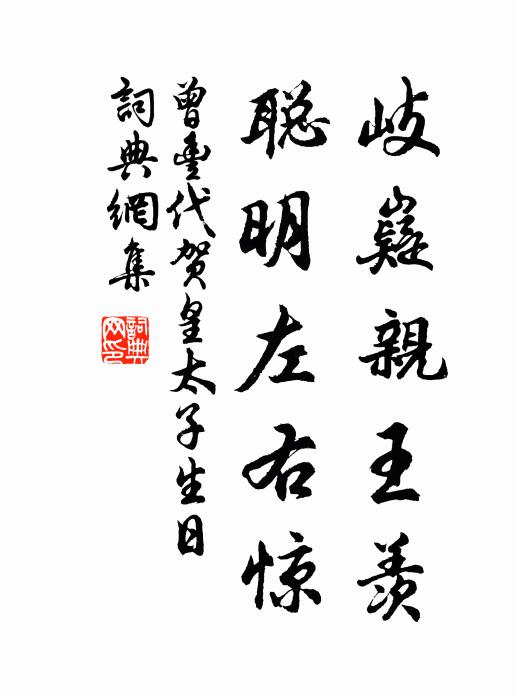 岐嶷親王羨
聪明左右惊
曾豊代贺皇太子生日
詞典網集
詞典
网印